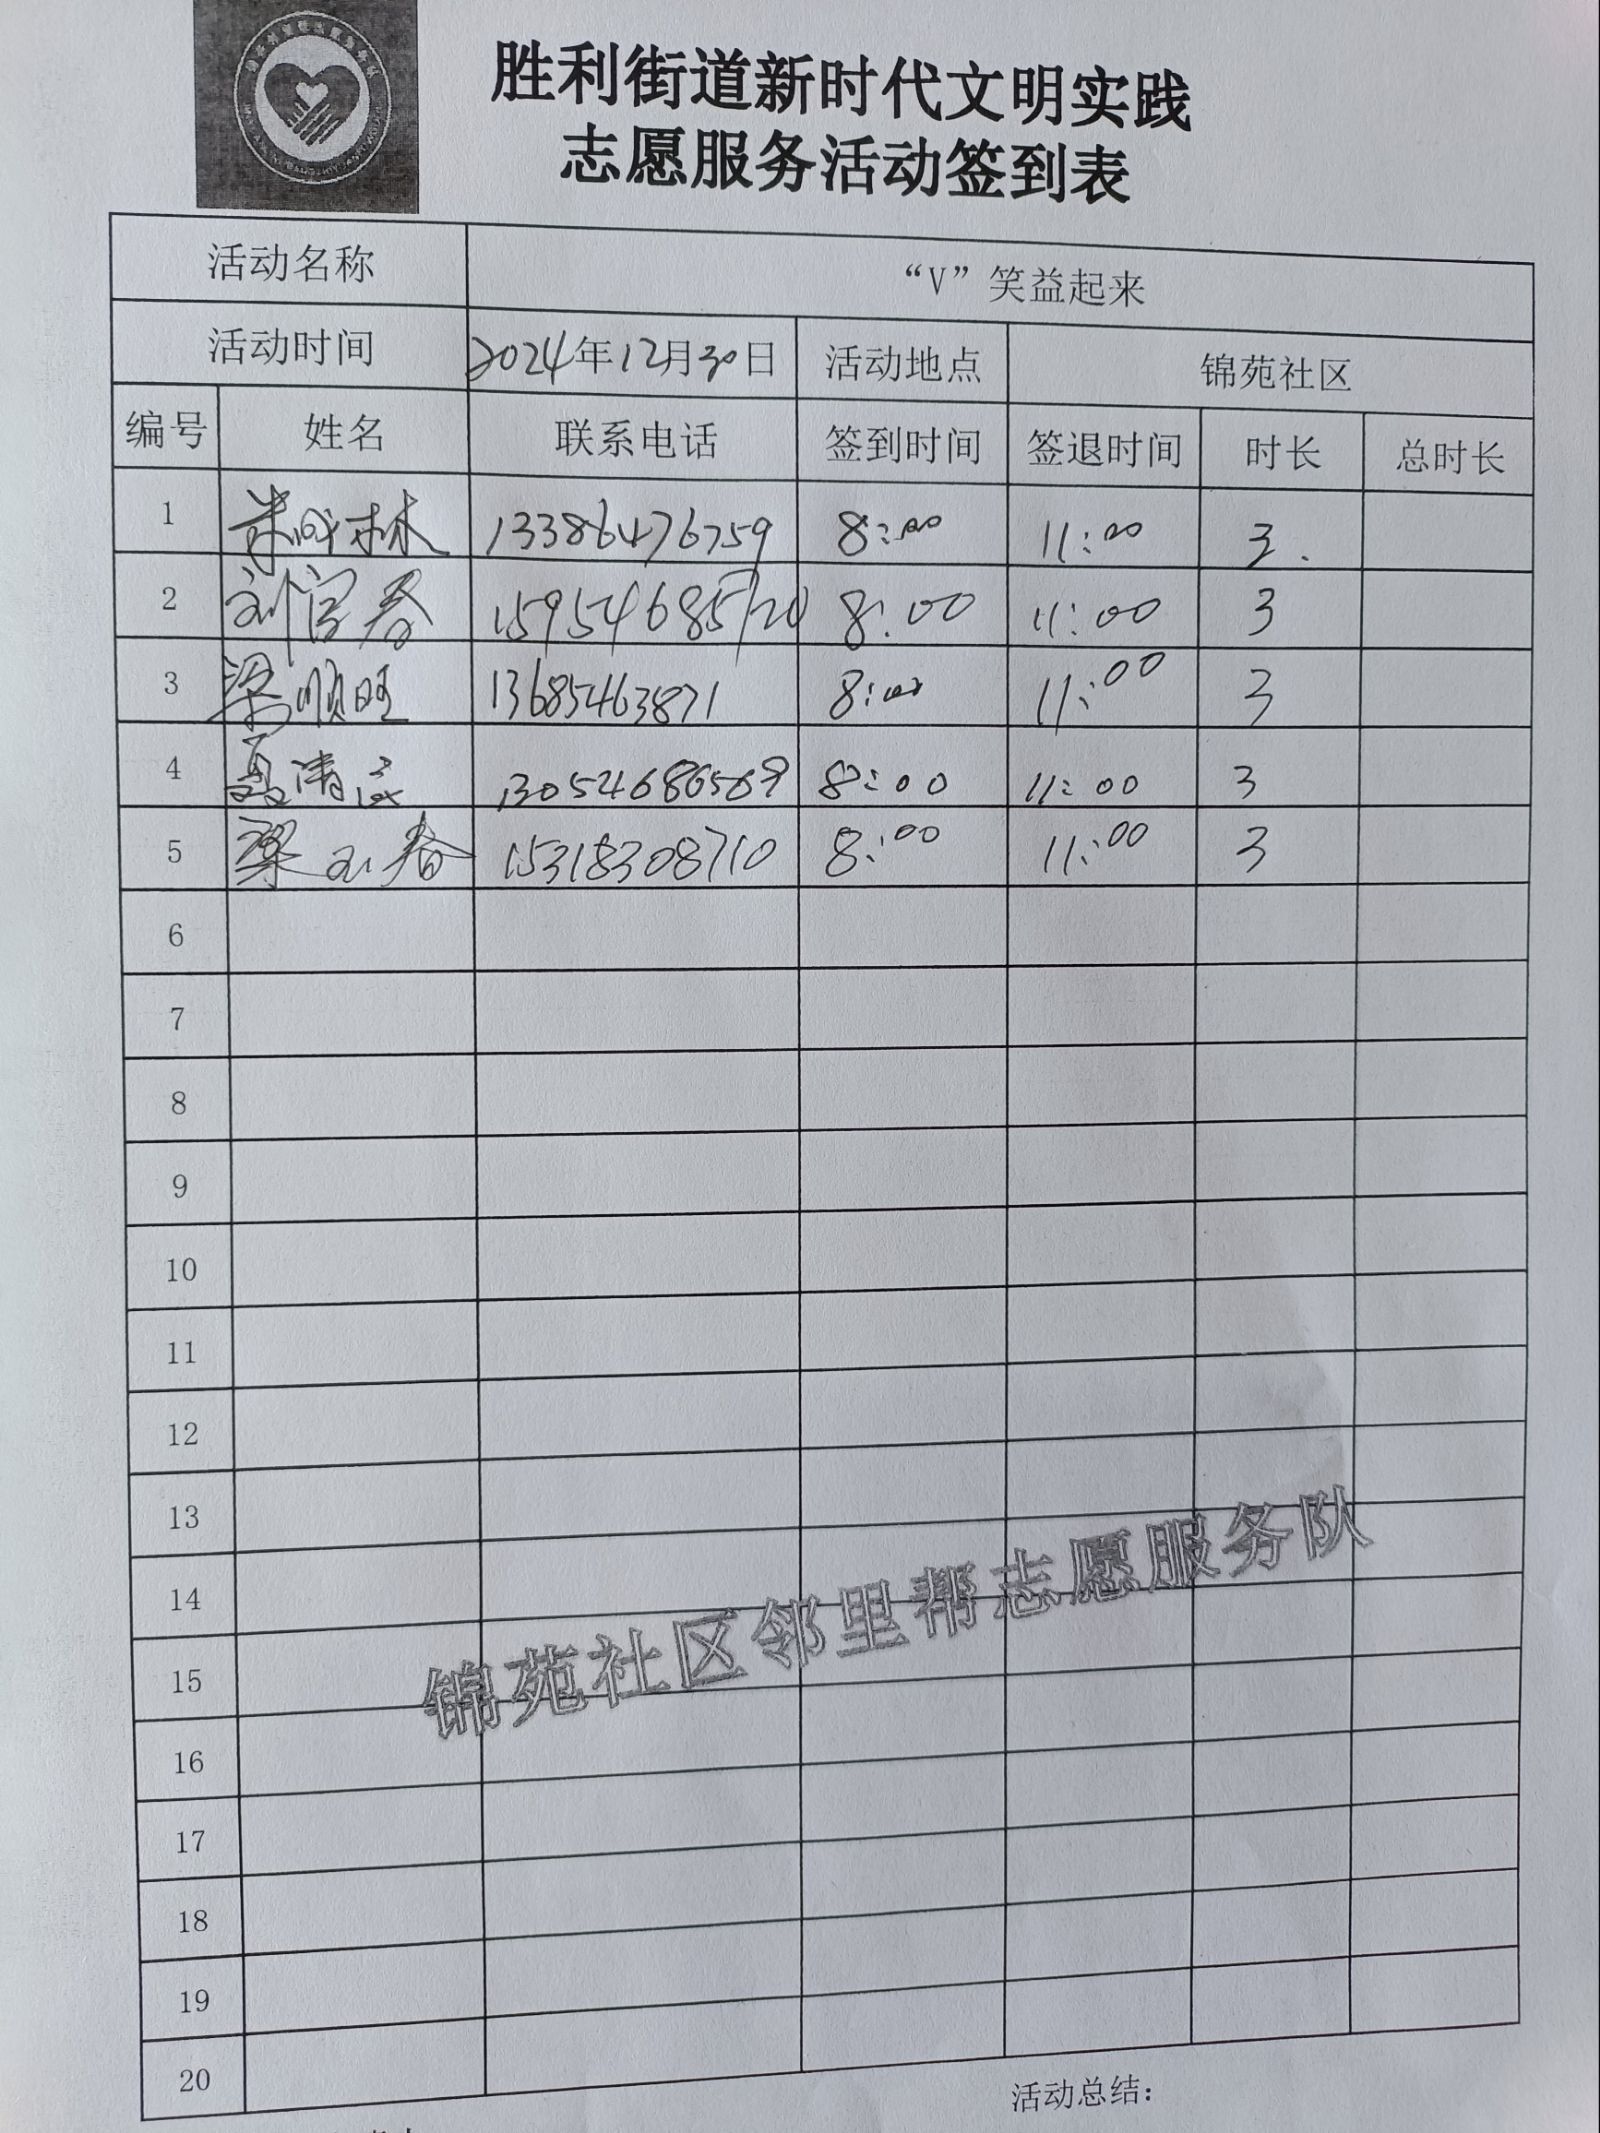 胜利街道新时代文明实践
志愿服务活动签到表
活动名称 “V”笑益起来
活动时间 2024年12月30日 活动地点 锦苑社区
编号 姓名 联系电话 签到时间 签退时间 时长 总时长
1 林 13386476759 8:00 11:00 3.
2 刘官春 15954685720 8:00 11:00 3
3 梁顺旺 13685463871 8:00 11:00 3
4 聂清 13054686569 8:00 11:00 3
5 梁玉春 15318308710 8:00 11:00 3
6
7
8
9
10
11
12
13
14
15
16
17
18
19
20
锦苑社区邻里帮志愿服务队
活动总结：